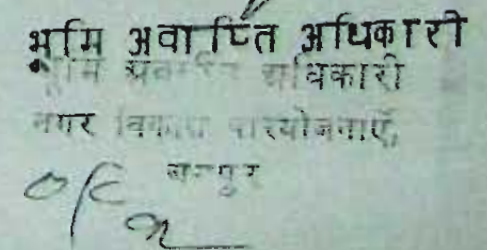 भूमि अवाप्ति अधिकारी
भूमि अवाप्ति अधिकारी
नगर विकास परियोजनाएँ,
जयपुर
O/C